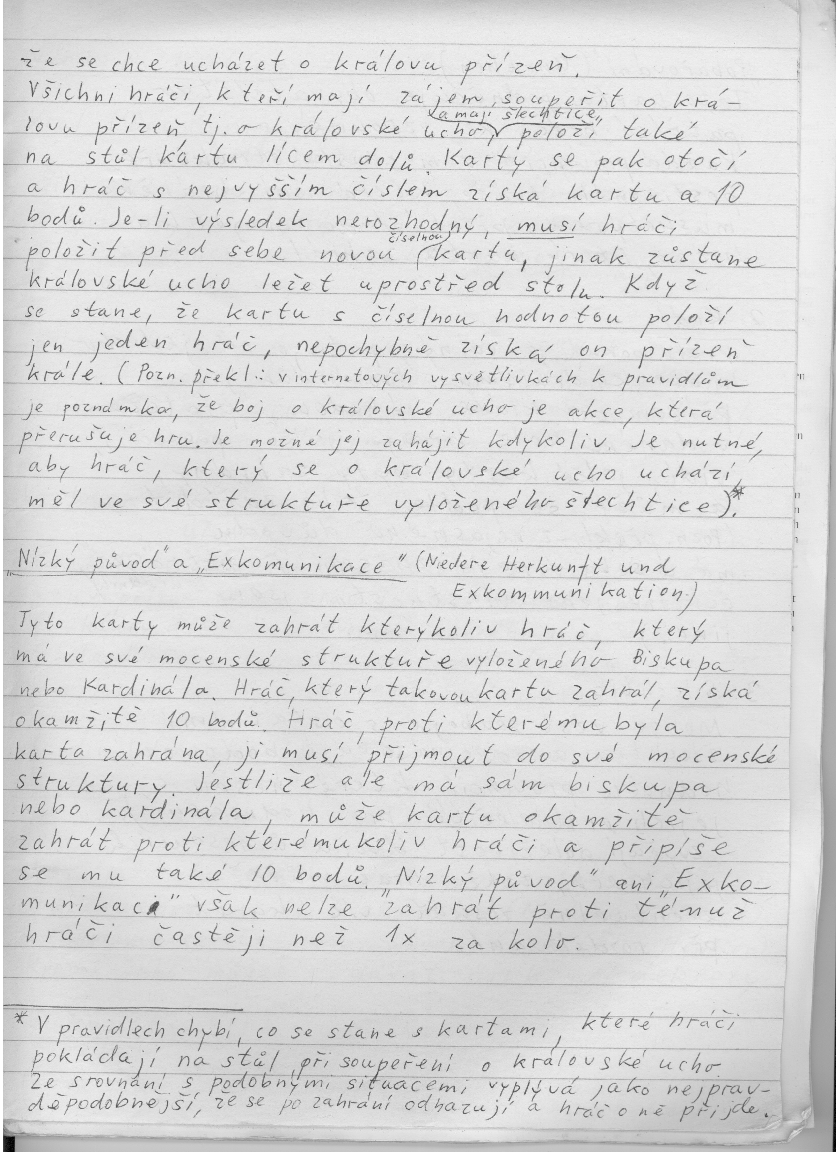 že se chce ucházet o královu přízeň.
Všichni hráči, kteří mají zájem soupeřit o krá-
a mají šlechtice,
lovu přízeň tj. o královské ucho, položí také
na stůl kartu lícem dolů. Karty se pak otočí
a hráč s nejvyšším číslem získá kartu a 10
bodů. Je-li výsledek nerozhodný, musí hráči
číselnou
položit před sebe novou kartu, jinak zůstane
královské ucho ležet uprostřed stolu. Když
se stane, že kartu s číselnou hodnotou položí
jen jeden hráč, nepochybně získá on přízeň
krále. (Pozn. překl.: v internetových vysvětlivkách k pravidlům
je poznámka, že boj o královské ucho je akce, která
přerušuje hru. Je možné jej zahájit kdykoliv. Je nutné,
aby hráč, který se o královské ucho uchází,
měl ve své struktuře vyloženého šlechtice).*
„Nízký původ" a „Exkomunikace" (Niedere Herkunft und
Exkommunikation)
Tyto karty může zahrát kterýkoliv hráč, který
má ve své mocenské struktuře vyloženého Biskupa
nebo Kardinála. Hráč, který takovou kartu zahrál, získá
okamžitě 10 bodů. Hráč, proti kterému byla
karta zahrána, ji musí přijmout do své mocenské
struktury. Jestliže ale má sám biskupa
nebo kardinála, může kartu okamžitě
zahrát proti kterémukoliv hráči a připíše
se mu také 10 bodů. „Nízký původ" ani „Exko-
munikaci" však nelze zahrát proti témuž
hráči častěji než 1x za kolo.
* V pravidlech chybí, co se stane s kartami, které hráči
pokládají na stůl při soupeření o královské ucho.
Ze srovnání s podobnými situacemi vyplývá jako nejprav-
děpodobnější, že se po zahrání odhazují a hráč o ně přijde.